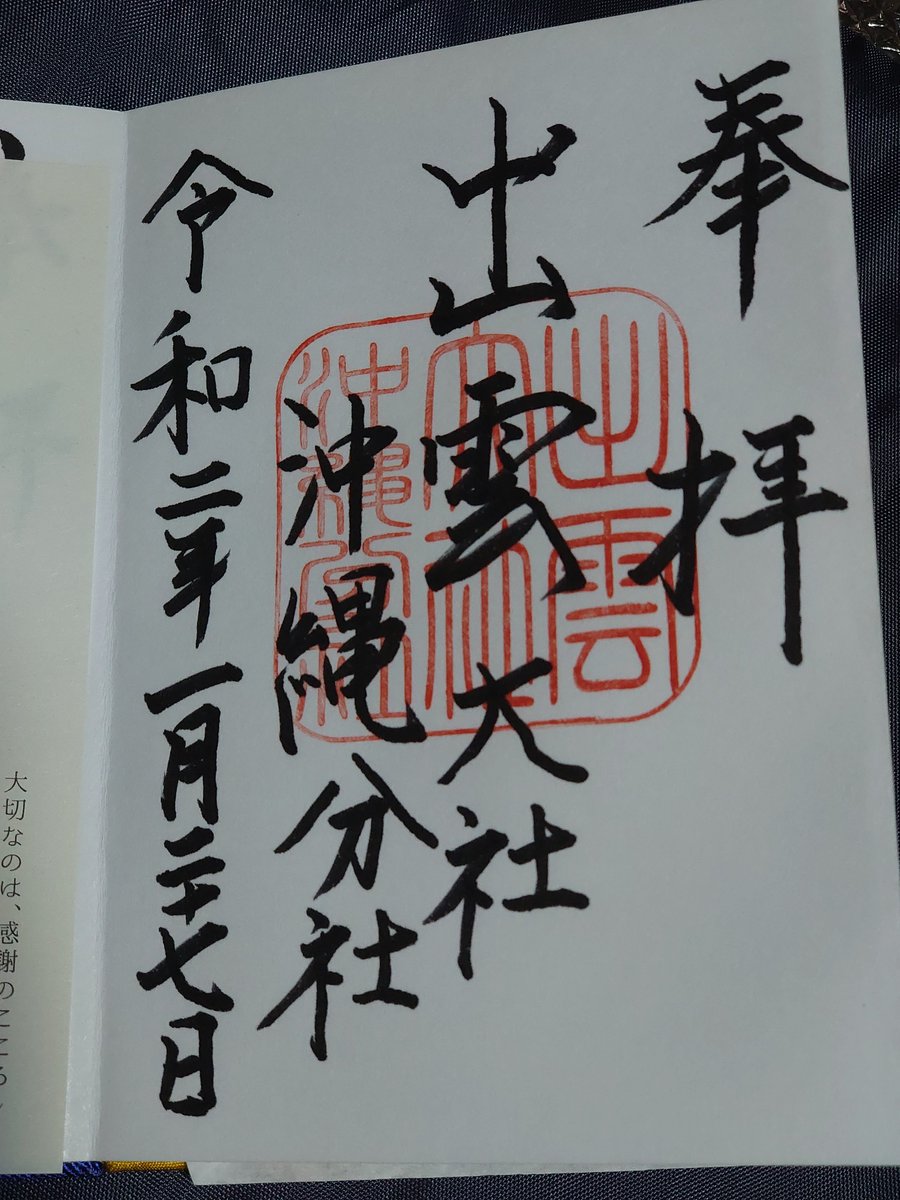 奉拝
出雲大社
沖縄分社
令和二年一月二十七日
出雲
大社
沖縄分社
大切なのは、感謝のこころ